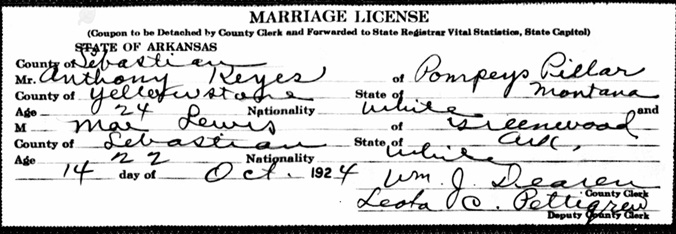 MARRIAGE LICENSE
(Coupon to be Detached by County Clerk and Forwarded to State Registrar Vital Statistics, State Capitol)
STATE OF ARKANSAS
County of Sebastian
Mr. Anthony Keyes of Pompeys Pillar
County of Yellowstone State of Montana
Age 24 Nationality White and
M Mae Lewis of Greenwood
County of Sebastian State of Ark,
Age 22 Nationality White
14 day of Oct. 1924 Wm. J. Dearen
County Clerk
Leota C. Pettigrew
Deputy County Clerk